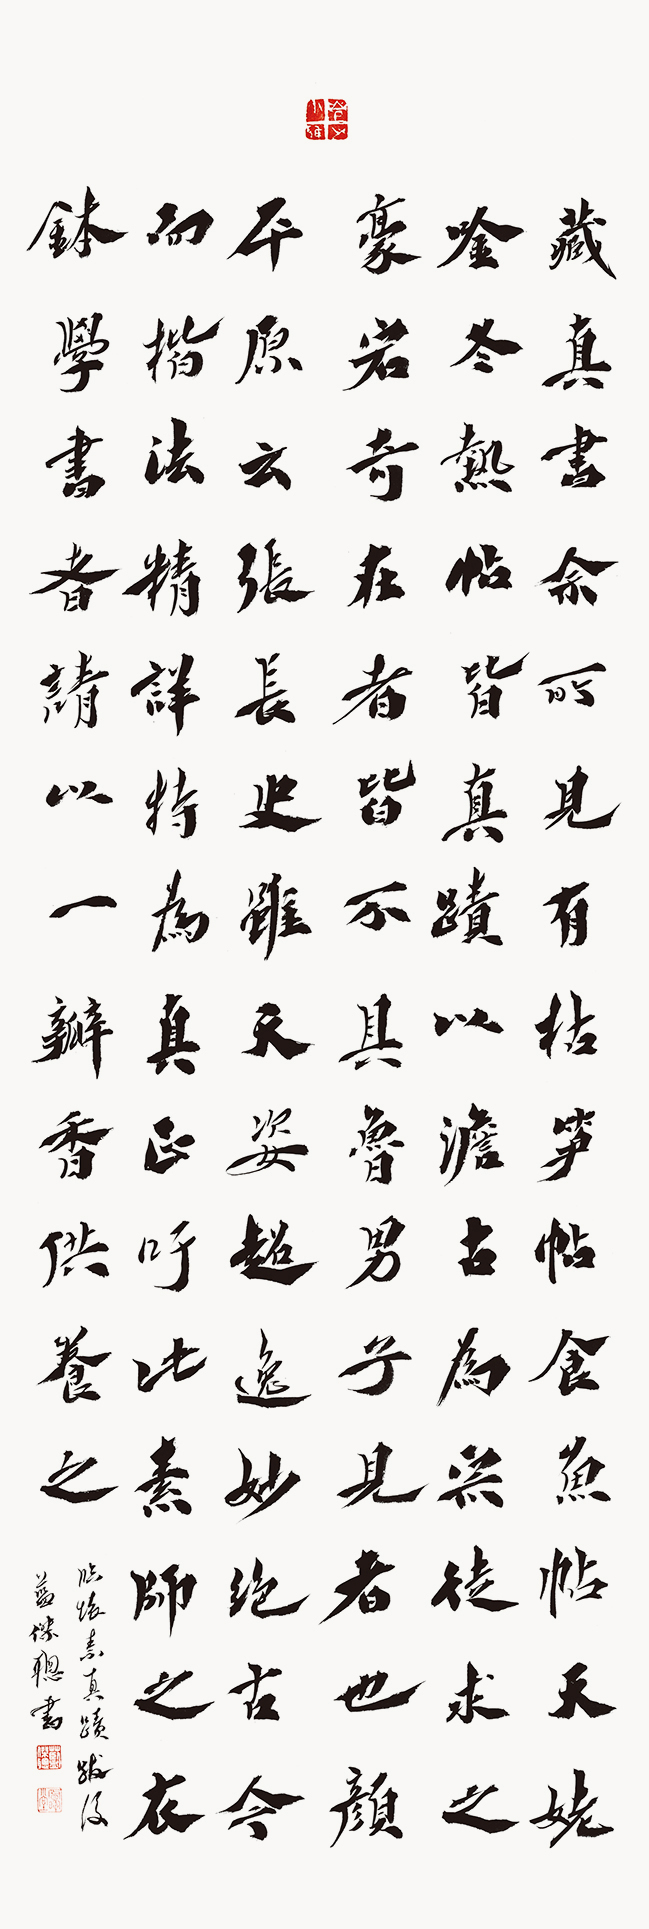 藏真書余所見有枯筍帖食魚帖天姥
唫冬熱帖皆真蹟以澹古為宗徒求之
豪宕奇在者皆不具魯男子見者也顏
平原云張長史雖天姿超逸妙絕古今
而楷法精詳特為真正吁此素師之衣
鉢學書者請以一瓣香供養之
臨懷素真蹟跋後
藍傑聰書